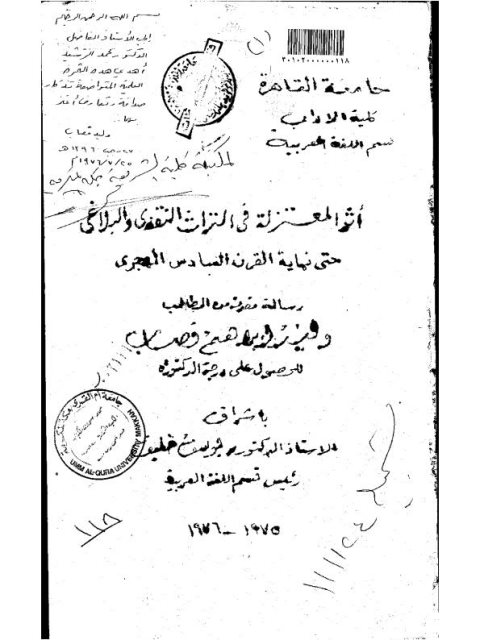 بسم الله الرحمن الرحيم
إلى الأستاذ الفاضل
الدكتور محمد الرشيد
أهدي هذه الثمرة
العلمية المتواضعة
وليد قصاب
٢٠١٠٢٠٠٠٠٠١١٨
(١)
جامعة القاهرة
كلية الآداب
قسم اللغة العربية
لمكتبة كلية الشريعة بمكة المكرمة
أثر المعتزلة في التراث النقدي والبلاغي
حتى نهاية القرن السادس الهجري
رسالة مقدمة من الطالب
وليد إبراهيم قصاب
للحصول على درجة الدكتوراه
بإشراف
الأستاذ الدكتور يوسف خليف
رئيس قسم اللغة العربية
١٩٧٥ - ١٩٧٦
جامعة أم القرى
UMM AL-QURA UNIVERSITY MAKKAH
١١٨